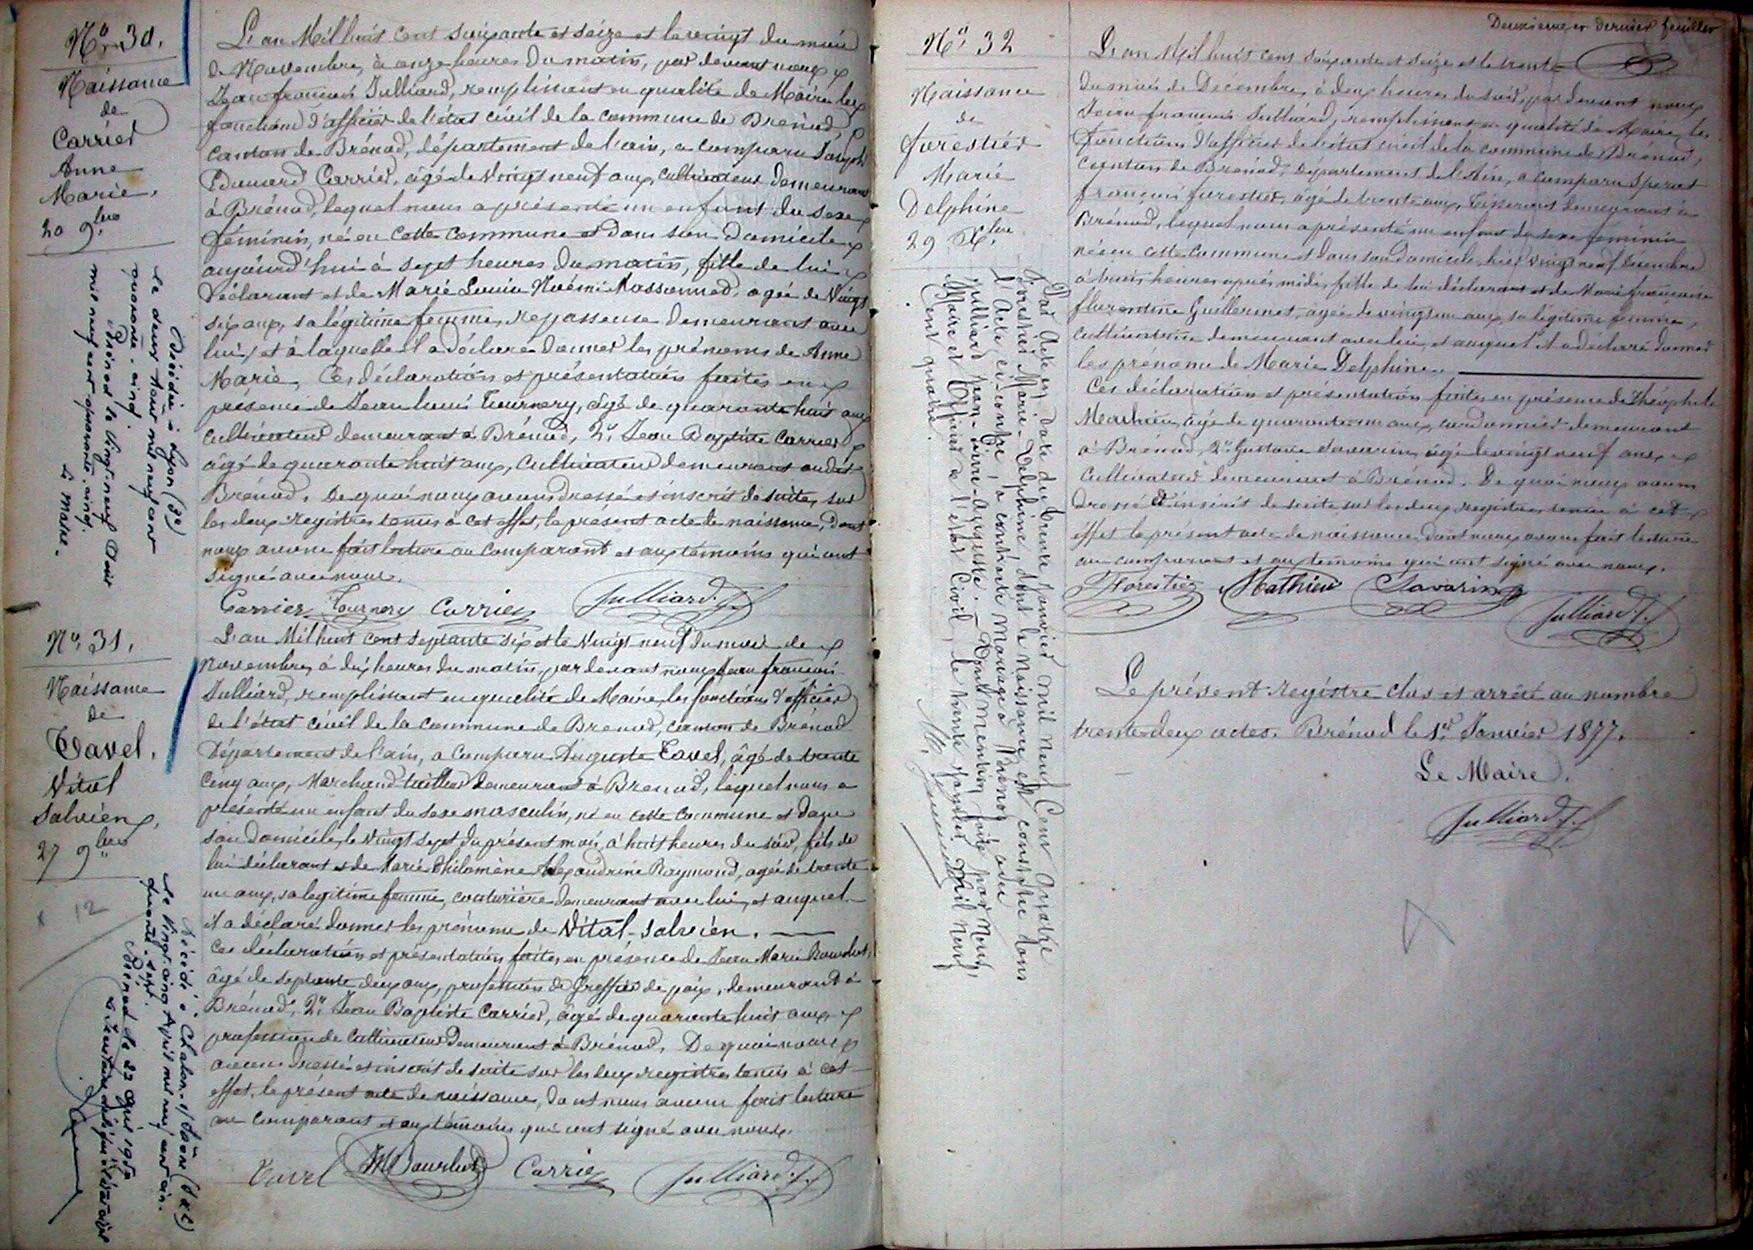 No 30.
Naissance
de
Carrier
Anne
Marie.
20 9.bre
Décédée à Lyon (3e)
le deux Aout mil neuf cent
quarante-cinq.
Brénod le vingt neuf Aout
mil neuf cent quarante cinq.
Le Maire.
L'an Mil huit cent soixante et seize et le vingt du mois
de Novembre, à onze heures du matin, par devant nous
Jean françois Julliard, remplissant en qualité de Maire les
fonctions d'officier de l'état civil de la commune de Brénod,
canton de Brénod, département de l'ain, a comparu Joseph
Edouard Carrier, âgé de Vingt neuf ans, cultivateur demeurant
à Brénod, lequel nous a présenté un enfant du sexe
féminin, né en cette commune et dans son Domicile
aujourd'hui à sept heures du matin, fille de lui
Déclarant et de Marie Louise Noémi Massonnod, agée de Vingt
six ans, sa légitime femme, repasseuse demeurant avec
lui, et à laquelle il a déclaré donner les prénoms de Anne
Marie. Ces déclaration et présentation faites en
présence de Jean Louis Tournery, âgé de quarante huit ans
cultivateur demeurant à Brénod, 2.º Jean Baptiste Carrier
âgé de quarante huit ans, Cultivateur demeurant audit
Brénod. De quoi nous avons dressé et inscrit de suite, sur
les deux registres tenus à cet effet, le présent acte de naissance, dont
nous avons fait lecture au comparant et aux témoins qui ont
signé avec nous.
Carrier Tournery Carrier Julliard J.f.
No 31.
Naissance
de
Tavel.
Vital
Salvien.
27 9.bre
12
Décédé à Chalon-s/Saône (S&L)
le vingt cinq Avril mil neuf cent
cinquante.
Brénod le 27 avril 1950
L'an Mil huit cent septante six et le Vingt neuf du mois de
Novembre, à dix heures du matin, par devant nous Jean françois
Julliard, remplissant en qualité de Maire, les fonctions d'officier
de l'état civil de la commune de Brénod, canton de Brénod
Département de l'ain, a comparu Auguste Tavel, âgé de trente
cinq ans, Marchand tailleur demeurant à Brénod, lequel nous a
présenté un enfant du sexe masculin, né en cette commune et dans
son domicile, le Vingt sept du présent mois, à huit heures du soir, fils de
lui déclarant et de Marie Philomène Alexandrine Raymond, agée de trente
un ans, sa légitime femme, couturière demeurant avec lui, et auquel
il a déclaré donner les prénoms de Vital-Salvien.
Ces déclaration et présentation faites en présence de Jean Marie Bourbot,
âgé de septante deux ans, profession de Greffier de paix, demeurant à
Brénod, 2.º Jean Baptiste Carrier, âgé de quarante huit ans,
profession de Cultivateur Demeurant à Brénod. De quoi nous
avons dressé et inscrit de suite sur les deux registres tenus à cet
effet, le présent acte de naissance, dont nous avons fait lecture
au comparant et aux témoins qui ont signé avec nous.
Tavel Carrier Julliard J.f.
Deuxieme et dernier feuillet
No 32
Naissance
de
Forestier
Marie
Delphine
29 Xbre
Par Acte en date du trente Janvier mil neuf Cent quatre
Forestier Marie-Delphine, dont la naissance est constatée dans
l'Acte ci-contre, a contracté mariage à Brénod avec
Julliard Jean-Pierre-Auguste. Dont mention faite par Nous,
Maire et Officier de l'état Civil, le trente Janvier mil neuf
Cent quatre.
L'an Mil huit cent soixante et seize et le trente
du mois de Décembre, à deux heures du soir, par devant nous
Jean françois Julliard, remplissant en qualité de Maire, les
fonctions d'officier de l'état civil de la commune de Brénod,
canton de Brénod, département de l'Ain, a comparu Sperat
françois forestier, âgé de trente ans, demeurant à
Brénod, lequel nous a présenté un enfant du sexe féminin
né en cette commune et dans son domicile, hier vingt neuf décembre
à trois heures après midi, fille de lui déclarant et de Marie françoise
florentine Guillermet, agée de vingt un ans, sa légitime femme,
cultivatrice demeurant avec lui, et auquel il a déclaré donner
les prénoms de Marie Delphine.
Ces déclaration et présentation faites en présence de Théophile
Mathieu, âgé de quarante un ans, cordonnier demeurant
à Brénod, 2.º Gustave Savarin, âgé de vingt neuf ans,
Cultivateur demeurant à Brénod. De quoi nous avons
dressé et inscrit de suite sur les deux registres tenus à cet
effet le présent acte de naissance, dont nous avons fait lecture
au comparant et aux témoins qui ont signé avec nous.
Forestier Mathieu Savarin
Julliard J.f.
Le présent registre clos et arrêté au nombre
trente deux actes. Brénod le 1er Janvier 1877.
Le Maire.
Julliard J.f.